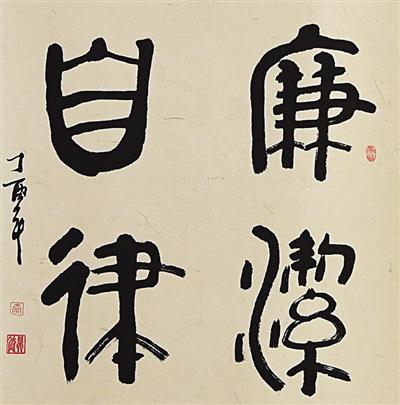 廉潔
自律
丁酉年